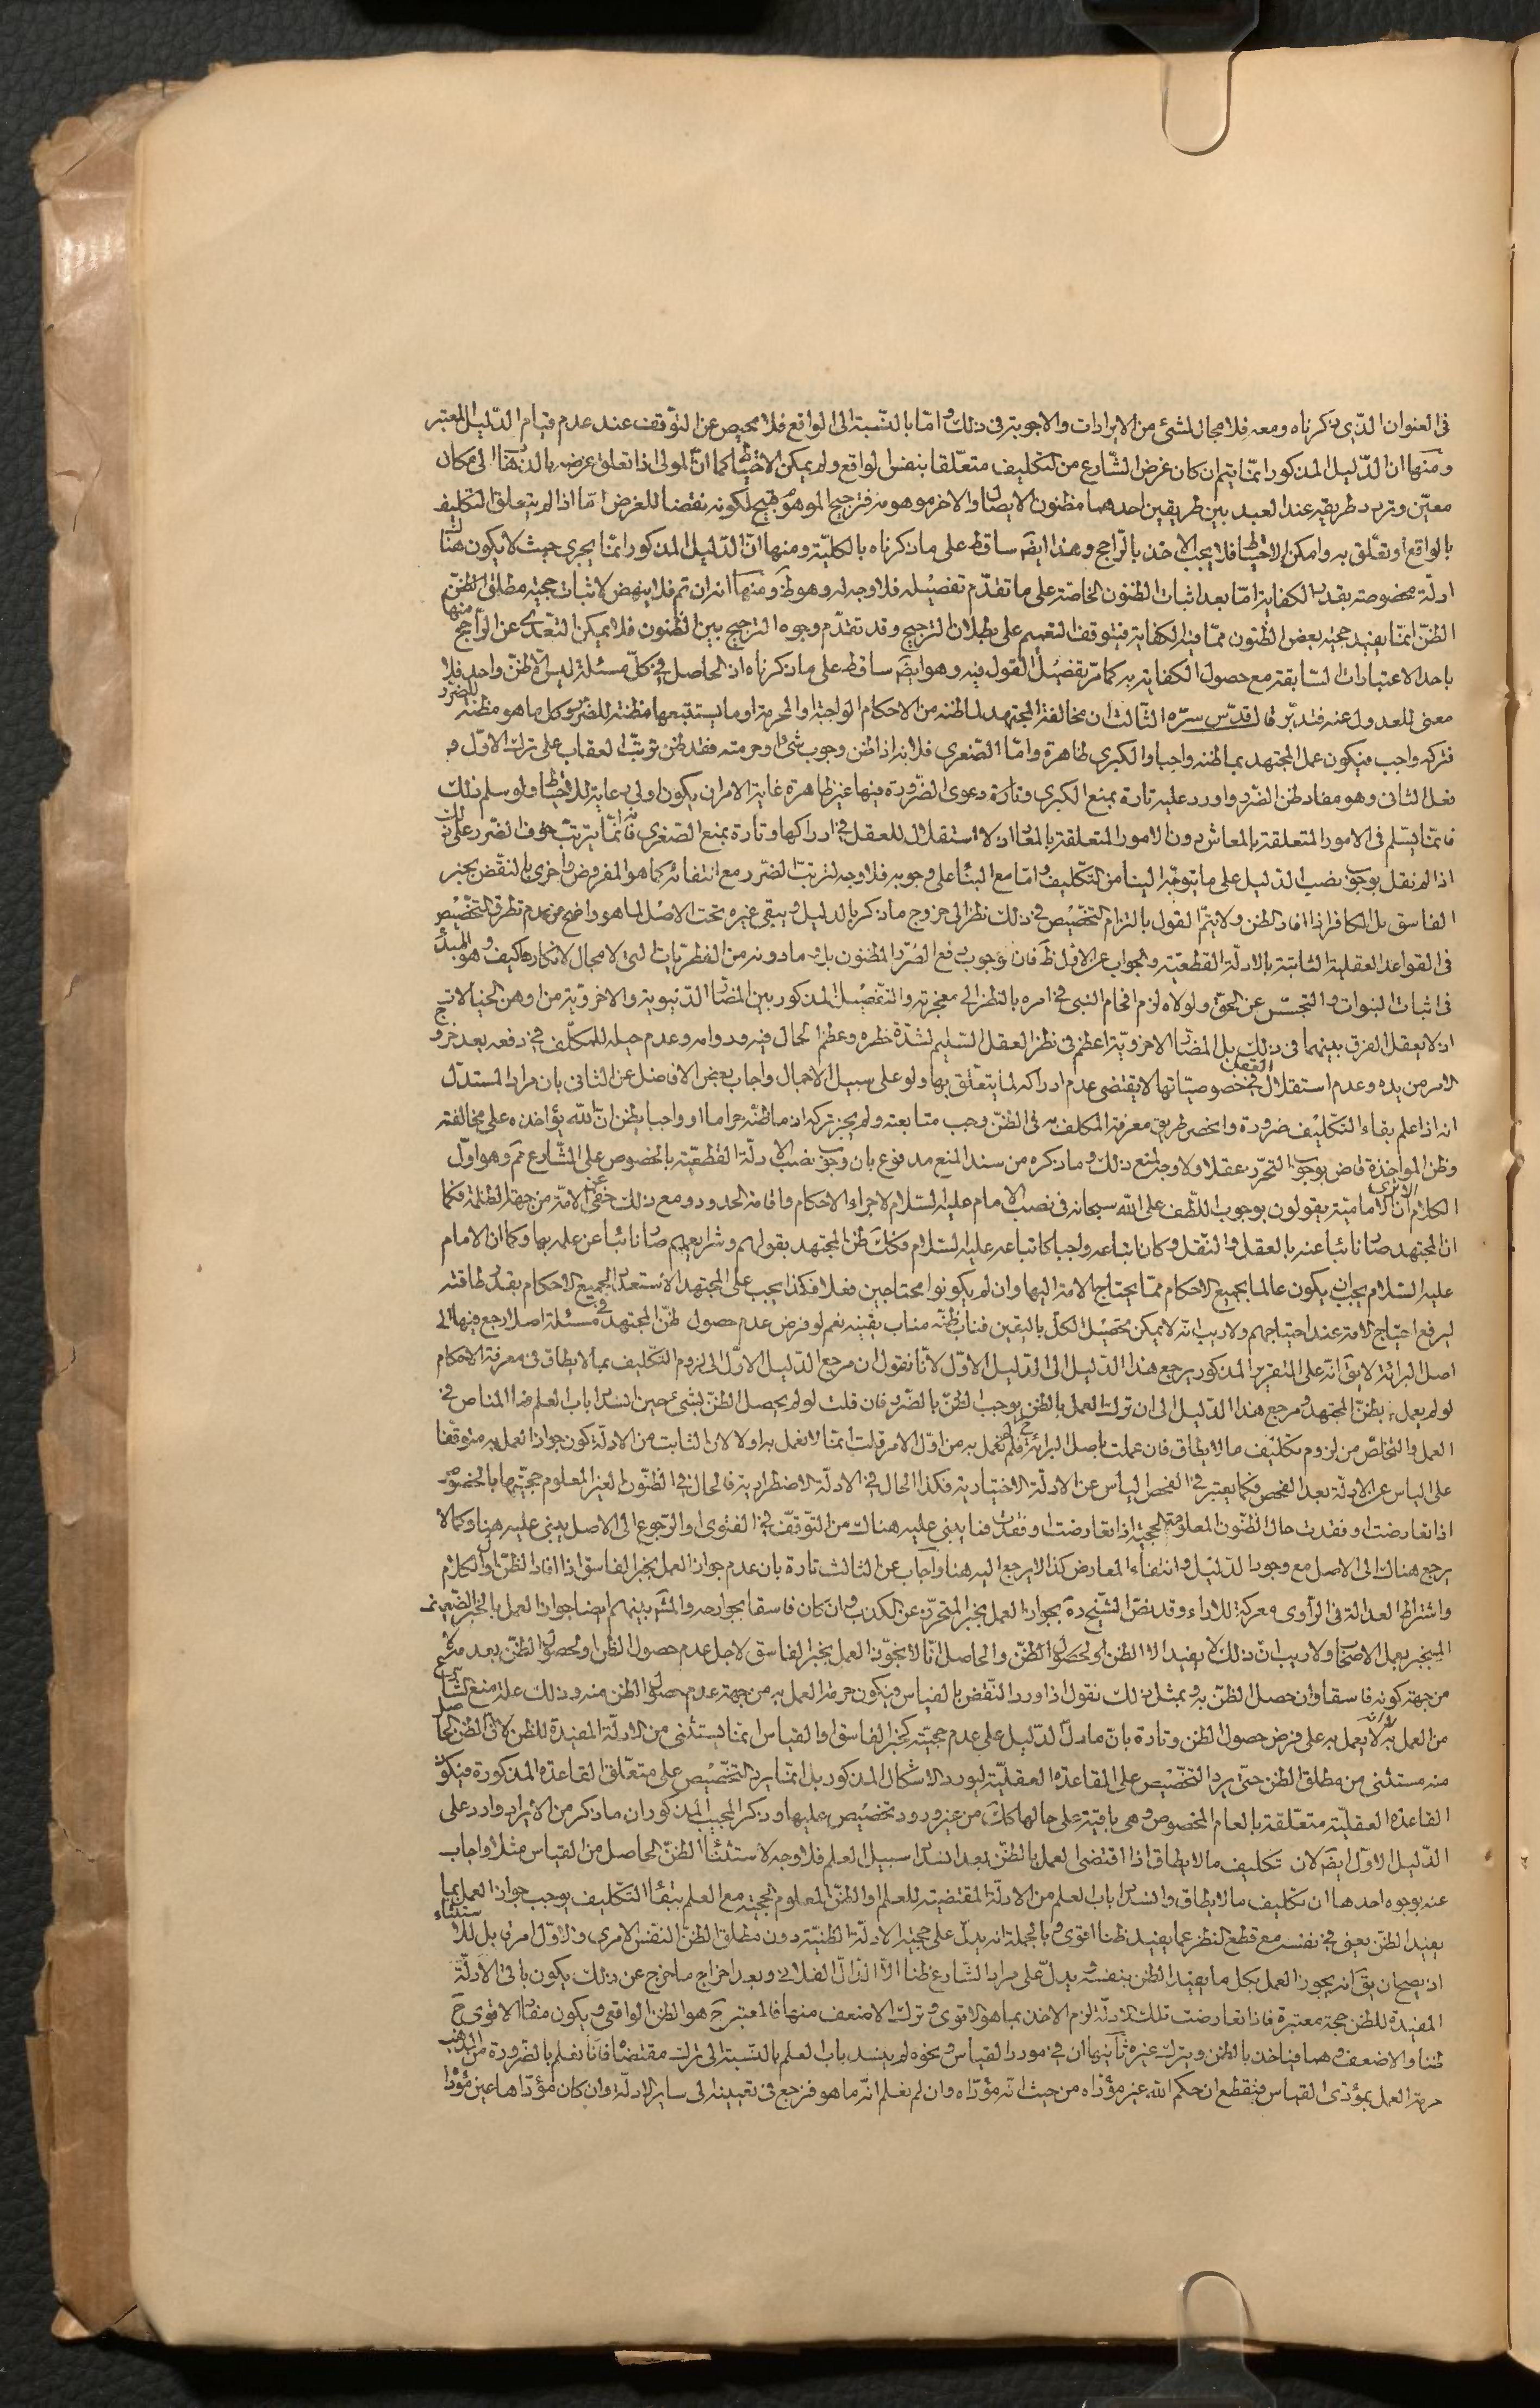 فى العنوان الذى ذكرناه ومعه فلا مجال لشئ من الايرادات والاجوبة فى ذلك وامّا بالنّسبة الى الواقع فلا محيص عن التوقف عند عدم قيام الدّليل المعتبر
ومنها ان الدّليل المذكور انّما يتم ان كان غرض الشّارع من التكليف متعلّقا بنفس الواقع ولم يمكن الاحتياط كما انّ المولى اذا تعلق غرضه بالذهاب الى مكان
معيّن وتردد طريقه عند العبد بين طريقين احدهما مظنون الايصال والاخر موهومه فترجيح الموهوم قبيح لكونه نقضا للغرض امّا اذا لم يتعلق التكليف
بالواقع او تعلّق به وامكن الاحتياط فلا يجب الاخذ بالرّاجح وهذا ايضَ ساقط على ما ذكرناه بالكليّة ومنها انّ الدّليل المذكور انّما يجرى حيث لا يكون هناك
ادلّة مخصوصة بقدر الكفاية امّا بعد اثبات الظنون الخاصّة على ما تقدّم تفصيله فلا وجه له وهو ظَ ومنها انه ان تم فلا ينهض لاثبات حجيّة مطلق الظنّ
الظنّ انّما يفيد حجيّة بعض الظنون ممّا فيه الكفاية فيتوقف التعميم على بطلان الترجيح وقد تقدّم وجوه الترجيح بين الظنون فلا يمكن التعدّى عن الرّاجح منها
باحد الاعتبارات السّابقة مع حصول الكفاية به كما مرّ تفصيل القول فيه وهو ايضَ ساقط على ما ذكرناه اذ الحاصل فى كلّ مسئلة ليس الّا ظنّ واحد فلا
معنى للعدول عنه فتدبّر قال قدّس سرّه الثّالث ان مخالفة المجتهد لما ظنه من الاحكام الواجبة او المحرمة او ما يستتبعها مظنة للضّرر وكل ما هو مظنّة للضرر
فتركه واجب فيكون عمل المجتهد بما ظنه واجبا والكبرى ظاهرة وامّا الصّغرى فلانه اذا ظن وجوب شئ او حرمته فقد ظن ترتّب العقاب على ترك الاوّل و
فعل الثانى وهو مفاد ظن الضّرر واورد عليه تارة بمنع الكبرى وتارة دعوى الضّرورة فيها غير ظاهرة غاية الامر ان يكون اولى رعاية للاحتياط ولو سلم ذلك
فانّما يسلم فى الامور المتعلقة بالمعاش دون الامور المتعلقة بالمعاد اذ لا استقلال للعقل فى ادراكها وتارة بمنع الصّغرى فانّه انّما يترتّب خوف الضّرر على ذلك
اذا لم نقل بوجوب نصب الدّليل على ما يتوجّه الينا من التّكليف وامّا مع البناء على وجوبه فلا وجه لترتّب الضّرر مع انتفائه كما هو المفروض واخرى بالنقّض بخبر
الفاسق بل الكافر اذا افاد الظن ولا يتمّ القول بالتزام التخصيص فى ذلك نظرا الى خروج ما ذكر بالدليل فيبقى غيره تحت الاصل لما هو واضح من عدم تطرق التخصيص
فى القواعد العقلية الثابتة بالادلّة القطعيّة والجواب عن الاوّل ظَ فان وجوب دفع الضّرر المظنون بل وما دونه من الفطريات التى لا مجال لانكارها كيف وهو المبدأ
فى اثبات النبوات والتجسّس عن الحقّ ولولاه لزم افحام النبى فى امره بالنظر الى معجزته والتّفصيل المذكور بين المضارّ الدّنيوية والاخرويّة من اوهن الخيالات
اذ لا يعقل الفرق بينهما فى ذلك بل المضارّ الاخرويّة اعظم فى نظر العقل السّليم لشدّة خطره وعظم الحال فيه ودوامه وعدم حيلة للمكلّف فى دفعه بعد خروج
الامر من يده وعدم استقلال العقل فى خصوصيّاتها لا يقتضى عدم ادراكه لما يتعلّق بها ولو على سبيل الاجمال واجاب بعض الافاضل عن الثانى بان مراد المستدل
انه اذا علم بقاء التّكليف ضرورة وانحصر طريق معرفة المكلف به فى الظنّ وجب متابعته ولم يجز تركه اذ ما ظنّه حراما او واجبا يظن ان الله يؤاخذه على مخالفته
وظن المؤاخذة قاض بوجوب التحرّز عقلا ولا وجه لمنع ذلك وما ذكره من سند المنع مدفوع بان وجوب نصب الادلّة القطعيّة بالخصوص على الشّارع مَم وهو اوّل
الكلام الا ترى انّ الاماميّة يقولون بوجوب اللّطف على الله سبحانه فى نصب الامام عليه السّلام لاجراء الاحكام واقامة الحدود ومع ذلك خفى عن الامّة من جهة الظلمة فكما
انّ المجتهد صار نائبا عنه بالعقل والنّقل وكان اتباعه واجبا كاتباعه عليه السّلام فكك ظن المجتهد بقولهم وشرايعهم صار نائبا عن علمه بها وكما ان الامام
عليه السّلام يجب ان يكون عالما بجميع الاحكام ممّا يحتاج الامة اليها وان لم يكونوا محتاجين فعلا فكذا يجب على المجتهد الاستعداد لجميع الاحكام بقدر طاقته
ليرفع احتياج الامّة عند احتياجهم ولا ريب انّه لا يمكن تحصيل الكلّ باليقين فناب ظنّه مناب يقينه نعم لو فرض عدم حصول ظنّ المجتهد فى مسئلة اصلا رجع فيها الى
اصل البرائة لا يقَ انّه على التقرير المذكور يرجع هذا الدّليل الى الدّليل الاوّل لانّا نقول ان مرجع الدّليل الاوّل الى لزوم التّكليف بما لا يطاق فى معرفة الاحكام
لو لم يعمل بظنّ المجتهد ومرجع هذا الدّليل الى ان ترك العمل بالظن يوجب الظنّ بالضّرر فان قلت لو لم يحصل الظنّ بشئ حين انسداد باب العلم فما المناص فى
العمل والتخلّص من لزوم تكليف ما لا يطاق فان عملت باصل البرائة حَ فلم لم تعمل به من اوّل الامر قلت انّما لا نعمل به اولا لان الثابت من الادلّة كون جواز العمل به متوقّفا
على الياس عن الادلّة بعد الفحص فكما يعتبر فى الفحص الياس عن الادلّة الاختيارية فكذا الحال فى الادلّة الاضطرارية فالحال فى الظنّون الغير المعلوم حجيّتها بالخصوص
اذا تعارضت او فقدت حال الظنّون المعلومة الحجية اذا تعارضت او فقدت فما يبنى عليه هناك من التّوقّف فى الفتوى او الرّجوع الى الاصل يبنى عليه هنا وكما لا
يرجع هناك الى الاصل مع وجود الدّليل وانتفاء المعارض كذا لا يرجع اليه هنا واجاب عن الثالث تارة بان عدم جواز العمل بخبر الفاسق اذا افاد الظنّ اوّل الكلام
واشتراط العدالة فى الراوى معركة للاراء وقد نصّ الشّيخ رَه بجواز العمل بخبر المتحرّز عن الكذب وان كان فاسقا بجوارحه والمشَ بينهم ايضا جواز العمل بالخبر الضعيف
المنجبر بعمل الاصحاب ولا ريب انّ ذلك لا يفيد الا الظن او لحصول الظنّ والحاصل انّا لا نجوّز العمل بخبر الفاسق لاجل عدم حصول الظن او لحصول الظنّ بعدمه لا
من جهة كونه فاسقا وان حصل الظنّ به وبمثل ذلك نقول اذا ورد النّقض بالقياس فيكون حرمة العمل به من جهة عدم حصول الظن منه وذلك علة منع الشّارع
من العمل به لا انّه لا يعمل به على فرض حصول الظن وتارة بان ما دلّ الدّليل على عدم حجيّته كخبر الفاسق او القياس انّما يستثنى من الادلّة المفيدة للظن لا انّ الظن الحاصل
منه مستثنى من مطلق الظن حتّى يرد التخّصيص على القاعدة العقليّة ليورد الاشكال المذكور بل انّما يرد التخّصيص على متعلّق القاعدة المذكورة فيكون
القاعدة العقليّة متعلّقة بالعام المخصوص وهى باقية على حالها كَكَ من غير ورود تخصيص عليها وذكر المجيب المذكور ان ما ذكر من الايراد وارد على
الدّليل الاوّل ايضَ لان تكليف ما لا يطاق اذا اقتضى العمل بالظنّ بعد انسداد سبيل العلم فلا وجه لاستثناء الظنّ الحاصل من القياس مثلا واجاب
عنه بوجوه احدها ان تكليف ما لا يطاق وانسداد باب العلم من الادلّة المقتضية للعلم او الظنّ المعلوم الحجية مع العلم ببقاء التّكليف يوجب جواز العمل بما
يفيد الظنّ يعنى فى نفسه مع قطع النظر عما يفيد ظنا اقوى وبالجملة انه يدلّ على حجية الادلّة الظنيّة دون مطلق الظنّ النفس الامرى والاوّل امر قابل للاستثناء
اذ يصحّ ان يقَ انه يجوز العمل بكل ما يفيد الظن بنفسه ويدلّ على مراد الشّارع ظنا الّا الدّالّ الفلانى وبعد اخراج ما خرج عن ذلك يكون باقى الادلّة
المفيدة للظن حجة معتبرة فاذا تعارضت تلك الادلّة لزم الاخذ بما هو الاقوى وترك الاضعف منها فالمعتبر حَ هو الظن الواقعى ويكون مفاد الاقوى حَ
ظنا والاضعف وهما فياخذ بالظن ويترك غيره ثانيها ان فى مورد القياس ونحوه لم ينسد باب العلم بالنّسبة الى ترك مقتضاه فانّا نعلم بالضّرورة من المذهب
حرمة العمل بمؤدّى القياس فنقطع ان حكم الله غير مؤدّاه من حيث انّه مؤدّاه وان لم نعلم انّه ما هو فنرجع فى تعيينه الى ساير الادلّة وان كان مؤدّاها عين مؤدّاه